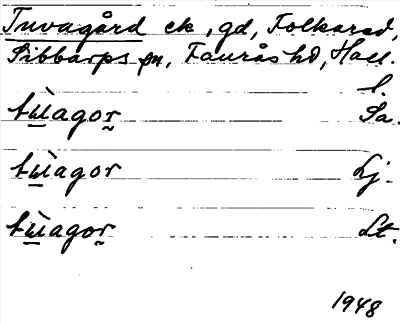 Tuvagård ck, gd, Folkared,
Sibbarps sn, Faurås hd, Hall.
l.
tẁagor Sa.
tẁagor Lj.
tẁagor Lt.
1948